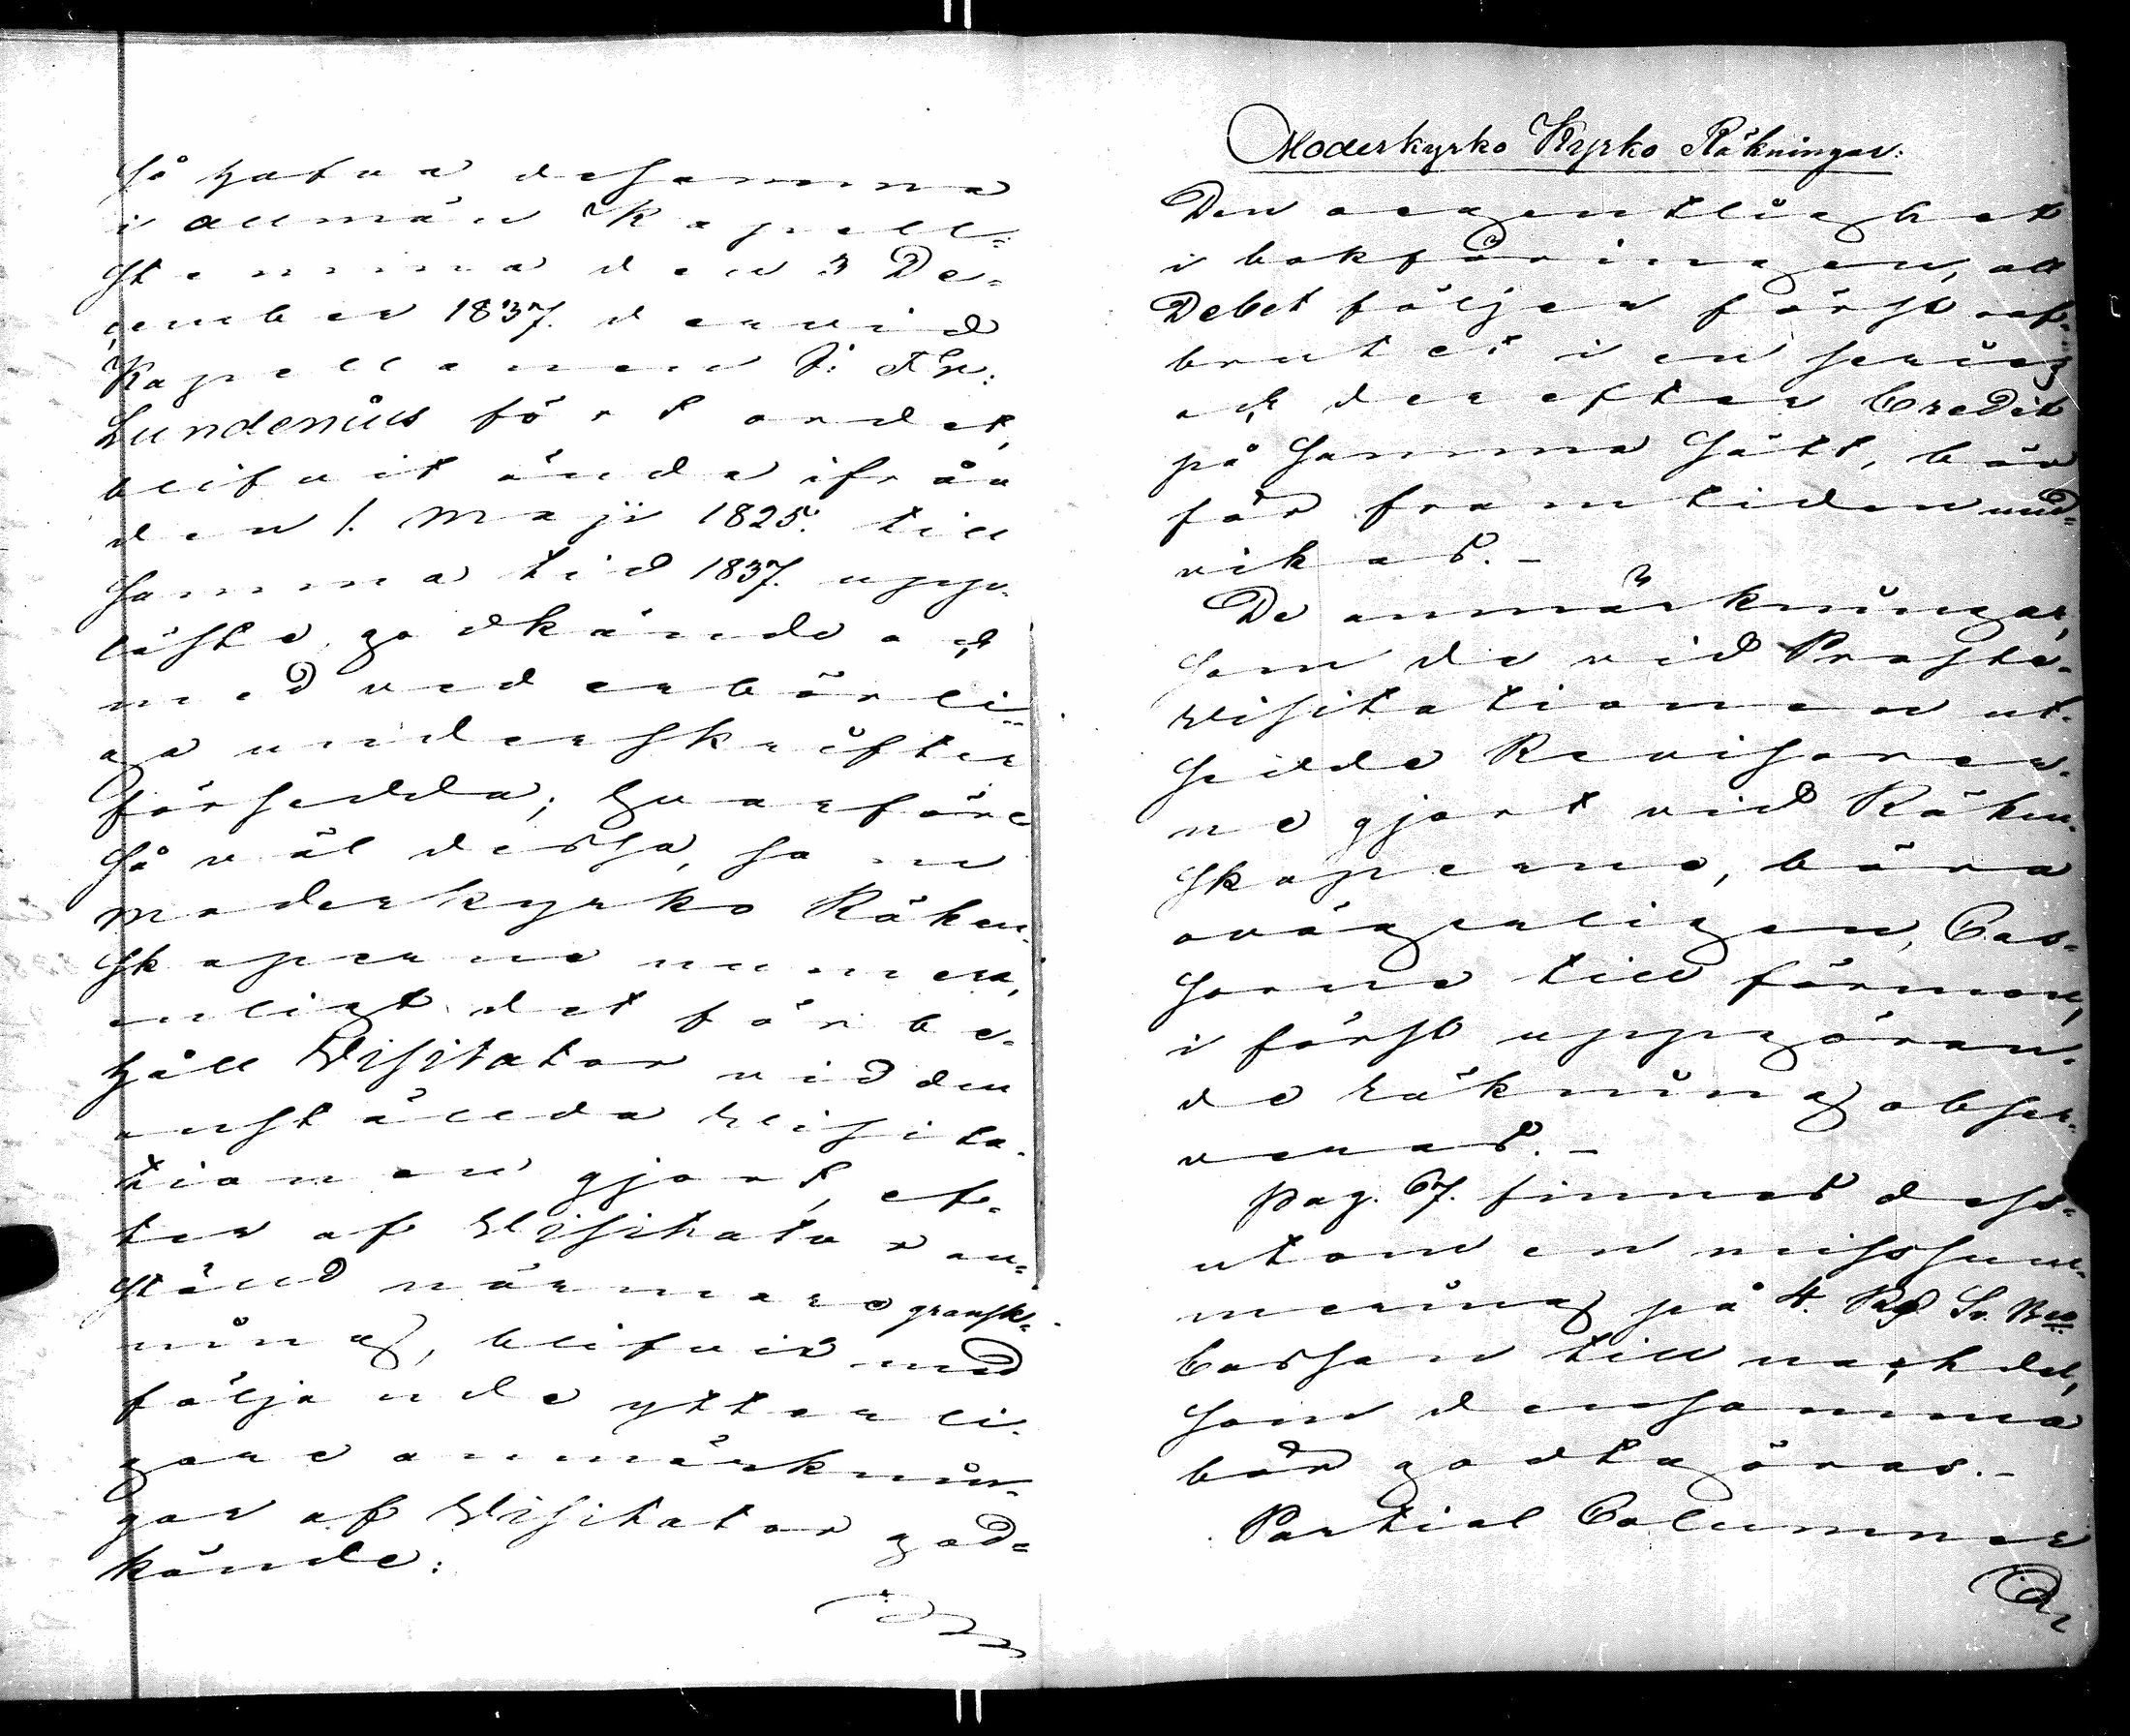 så hafva desamma
i allmän Kapell-
stemma den 3 De-
cember 1837. dervid
Kapellanen J: Fr:
Lundenius fört ordet,
blifvit ända ifrån
den 1. Maji 1825. till
samma tid 1837. upp-
läste, godkände och
med vederbörli-
ga underskrifter
försedda; hvarföre
så väl dessa, som
moderkyrko Räken-
skaperne numera,
enligt det förbe-
håll Visitator vid den
anstälda Visita-
tionen gjort, ef-
ter af Visitator an-
stäld närmare gransk-
ning, blifvit med
följande ytterli-
gare anmärknin-
gar af Visitator god-
kände:
Moderkyrko Kyrko Räkningar:
Den oegentlighet
i bokföringen, att
Debet följer först oaf-
brutet i en serie
och derefter Credit
på samma sätt, bör
för framtiden und-
vikas.-
De anmärkningar,
som de vid Prosts-
visitationen ut-
sedde Revisorer-
ne gjort vid Räken-
skaperne, böra
ovägerligen, Cas-
sorne till förmon,
i först uppgöran-
de räkning obser-
veras.-
Pag. 67. finnes dess-
utom en missum-
mering på 4. Rd Sr. Bco
Cassan till nachdel,
som densamma
bör godtgöras.-
Partial Columner